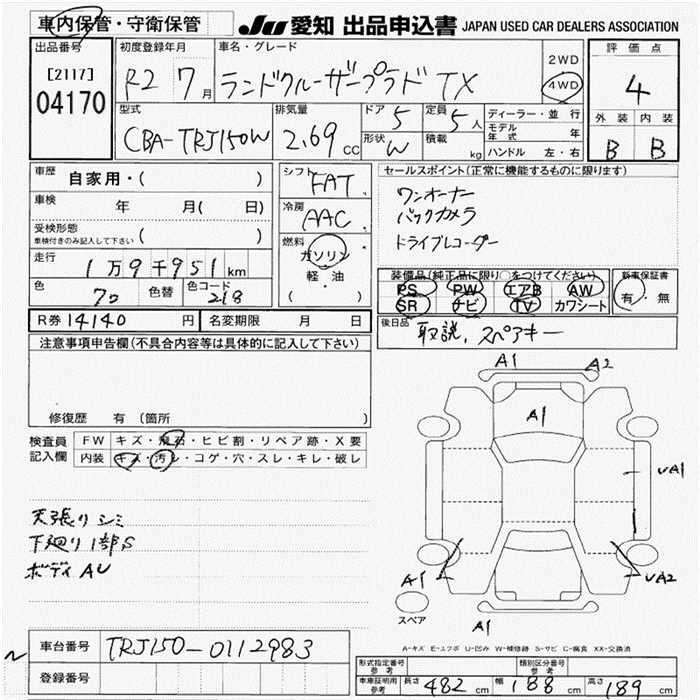 車内保管・守衛保管
JU 愛知 出品申込書 JAPAN USED CAR DEALERS ASSOCIATION
出品番号
[2117]
04170
初度登録年月
R2 7月
車名・グレード
ランドクルーザープラド TX
2WD
4WD
評価点
4
外装 内装
B B
型式
CBA-TRJ150W
排気量
2.69 CC
ドア 5
定員 5人
形状 W
積載 kg
ディーラー・並行
モデル年式 年
ハンドル 左・右
車歴
自家用・( )
車検 年 月( 日)
受検形態
車検付きのみ記入して下さい ( )
走行
1万9千951km
色
クロ
色替
色コード
218
シフト
FAT
冷房
AAC
燃料
ガソリン
軽・油
( )
セールスポイント(正常に機能するものに限ります)
ワンオーナー
バックカメラ
ドライブレコーダー
装備品(純正品に限り○をつけてください)
PS PW エアB AW
SR ナビ TV カワシート
新車保証書
有・無
R券 14140 円
名変期限 月 日
後日品
取説、スペアキー
注意事項申告欄(不具合内容等は具体的に記入して下さい)
修復歴 有(箇所 )
検査員記入欄
FW キズ・飛石・ヒビ割・リペア跡・X要
内装 キズ・汚レ・コゲ・穴・スレ・キレ・破レ
天張りシミ
下廻り1部S
ボディAU
A1 A2
A1
UA1
A1
UA2
スペア
A1
A-キズ E-エクボ U-凹み W-補修跡 S-サビ C-腐食 XX-交換済
車台番号 TRJ150-0112983
登録番号
形式指定番号
参考
類別区分番号
参考
車庫証明用
参考
長さ 482 cm 幅 188 cm 高さ 189 cm